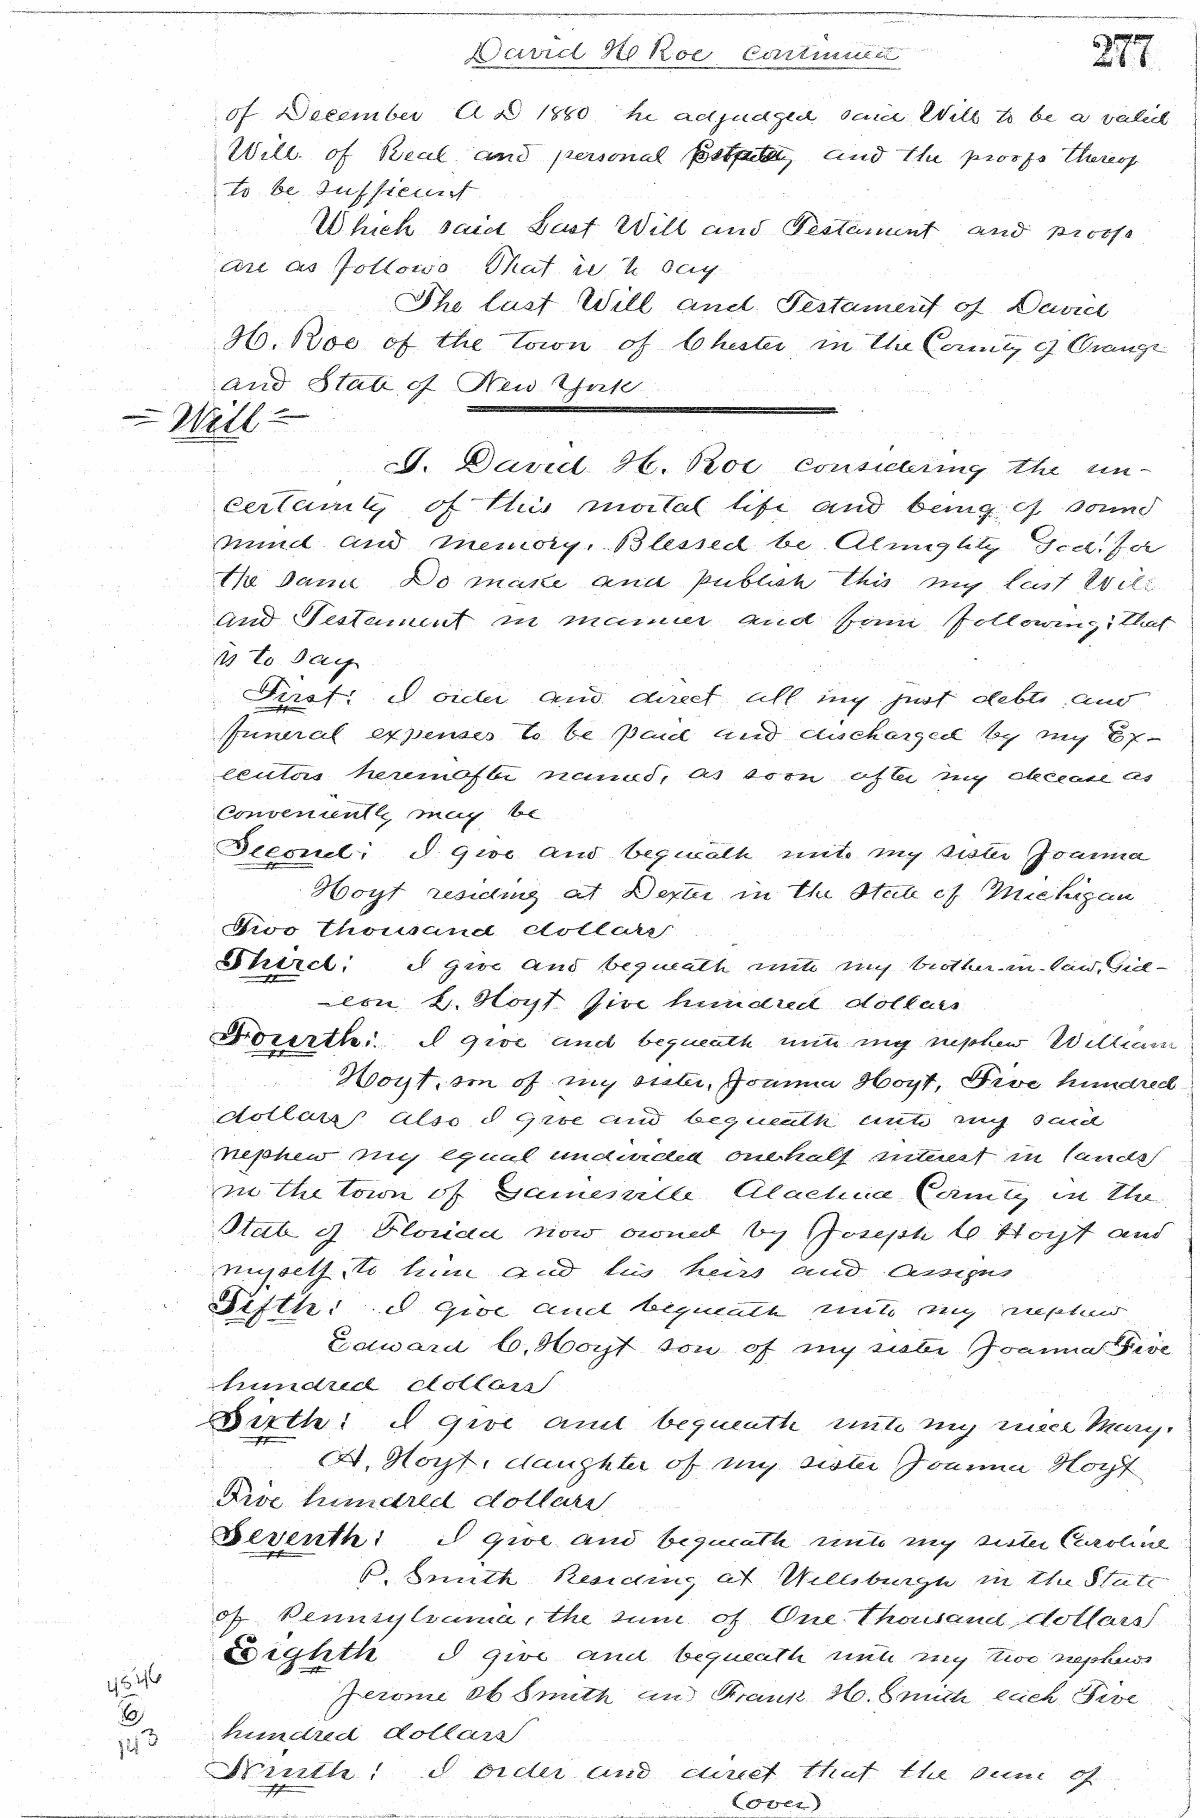 David H Roe continued
277
of December A D 1880 he adjudged said Will to be a valid
Will of Real and personal and the proofs thereof
to be sufficient
Which said Last Will and Testament and proofs
are as follows That is to say
The last Will and Testament of David
H. Roe of the town of Chester in the County of Orange
and State of New York
= Will =
I. David H. Roe considering the un-
certainty of this mortal life and being of sound
mind and memory. Blessed be Almighty God! for
the same Do make and publish this my last Will
and Testament in manner and form following; that
is to say
First: I order and direct all my just debts and
funeral expenses to be paid and discharged by my Ex-
ecutors hereinafter named, as soon after my decease as
conveniently may be
Second: I give and bequeath unto my sister Joanna
Hoyt residing at Dexter in the State of Michigan
Two thousand dollars
Third: I give and bequeath unto my brother-in-law, Gid-
-eon L. Hoyt five hundred dollars
Fourth: I give and bequeath unto my nephew William
Hoyt, son of my sister, Joanna Hoyt, Five hundred
dollars also I give and bequeath unto my said
nephew my equal undivided onehalf interest in lands
in the town of Gainesville Alachua County in the
State of Florida now owned by Joseph C Hoyt and
myself, to him and his heirs and assigns
Fifth: I give and bequeath unto my nephew
Edward C. Hoyt son of my sister Joanna Five
hundred dollars
Sixth: I give and bequeath unto my niece Mary.
A. Hoyt, daughter of my sister Joanna Hoyt
Five hundred dollars
Seventh: I give and bequeath unto my sister Caroline
P. Smith Residing at Wellsburgh in the State
of Pennsylvania, the sum of One thousand dollars
Eighth I give and bequeath unto my two nephews
Jerome H Smith and Frank H. Smith each Five
hundred dollars
4546
6
143
Ninth: I order and direct that the sum of
(over)